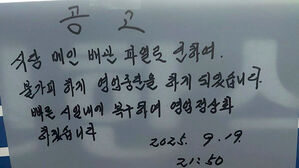 공 고
시장 메인 배선 파열로 인하여.
불가피 하게 영업중단을 하게 되었습니다.
빠른 시일내에 복구하여 영업정상화
하겠습니다
2025. 9. 19.
21:50